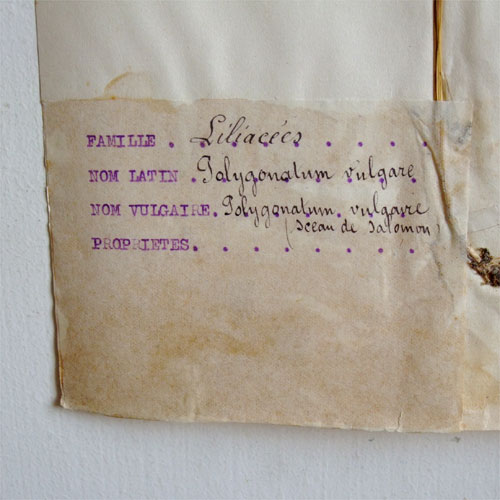 FAMILLE . Liliacées . . . . .
NOM LATIN . Polygonatum vulgare
NOM VULGAIRE. Polygonatum vulgaire
(Sceau de Salomon)
PROPRIETES. . . . . . . .